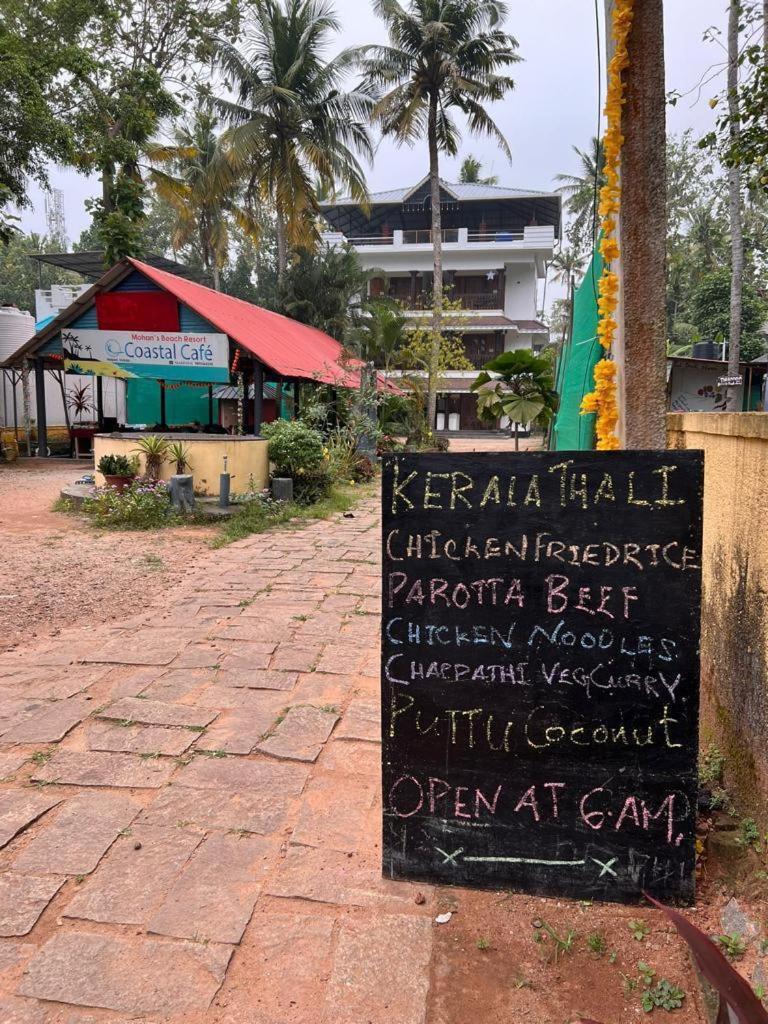 Mohan's Beach Resort
Coastal Café
KERALA THALI
CHICKEN FRIEDRICE
PAROTTA BEEF
CHICKEN NOODLES
CHAPPATHI VEG CURRY
PUTTU Coconut
OPEN AT 6.AM,
x x